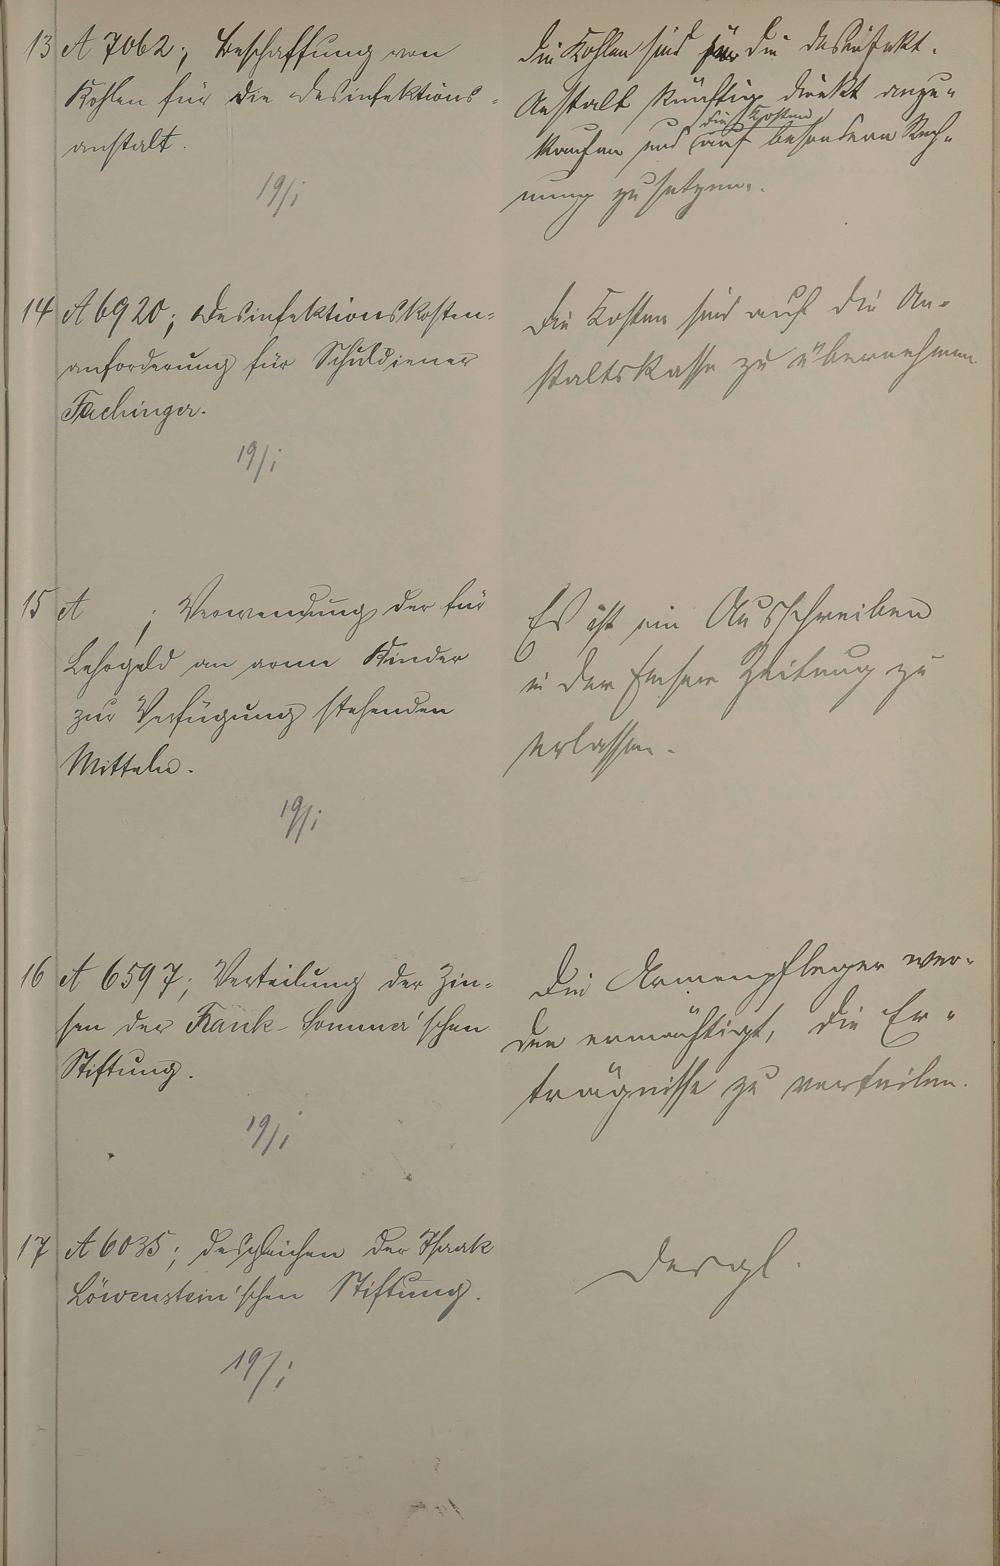 13 A 7062; Beschaffung von
Kohlen für die Desinfektions-
anstalt.
19/I
Die Kohlen sind für die Desinfekt.
Anstalt künftig direkt anzu-
die Kosten
kaufen und auf besondern Rech-
nung zu setzen.
14 A 6920; Desinfektionskosten-
anforderung für Schuldiener
Fachinger.
19/I
Die Kosten sind auf die An-
staltskasse zu übernehmen
15 A ; Verwendung der für
Lehrgeld an arme Kinder
zur Verfügung stehenden
Mitteln.
19/I
Es ist ein Ausschreiben
in der Emser Zeitung zu
erlassen.
16 A 6597; Verteilung der Zin-
sen der Frank-Sommer'schen
Stiftung.
19/I
Die Armenpfleger wer-
den ermächtigt, die Er-
trägnisse zu verteilen.
17 A 6035; desgleichen der Isaak
Löwenstein'schen Stiftung.
19/I
Dergl.